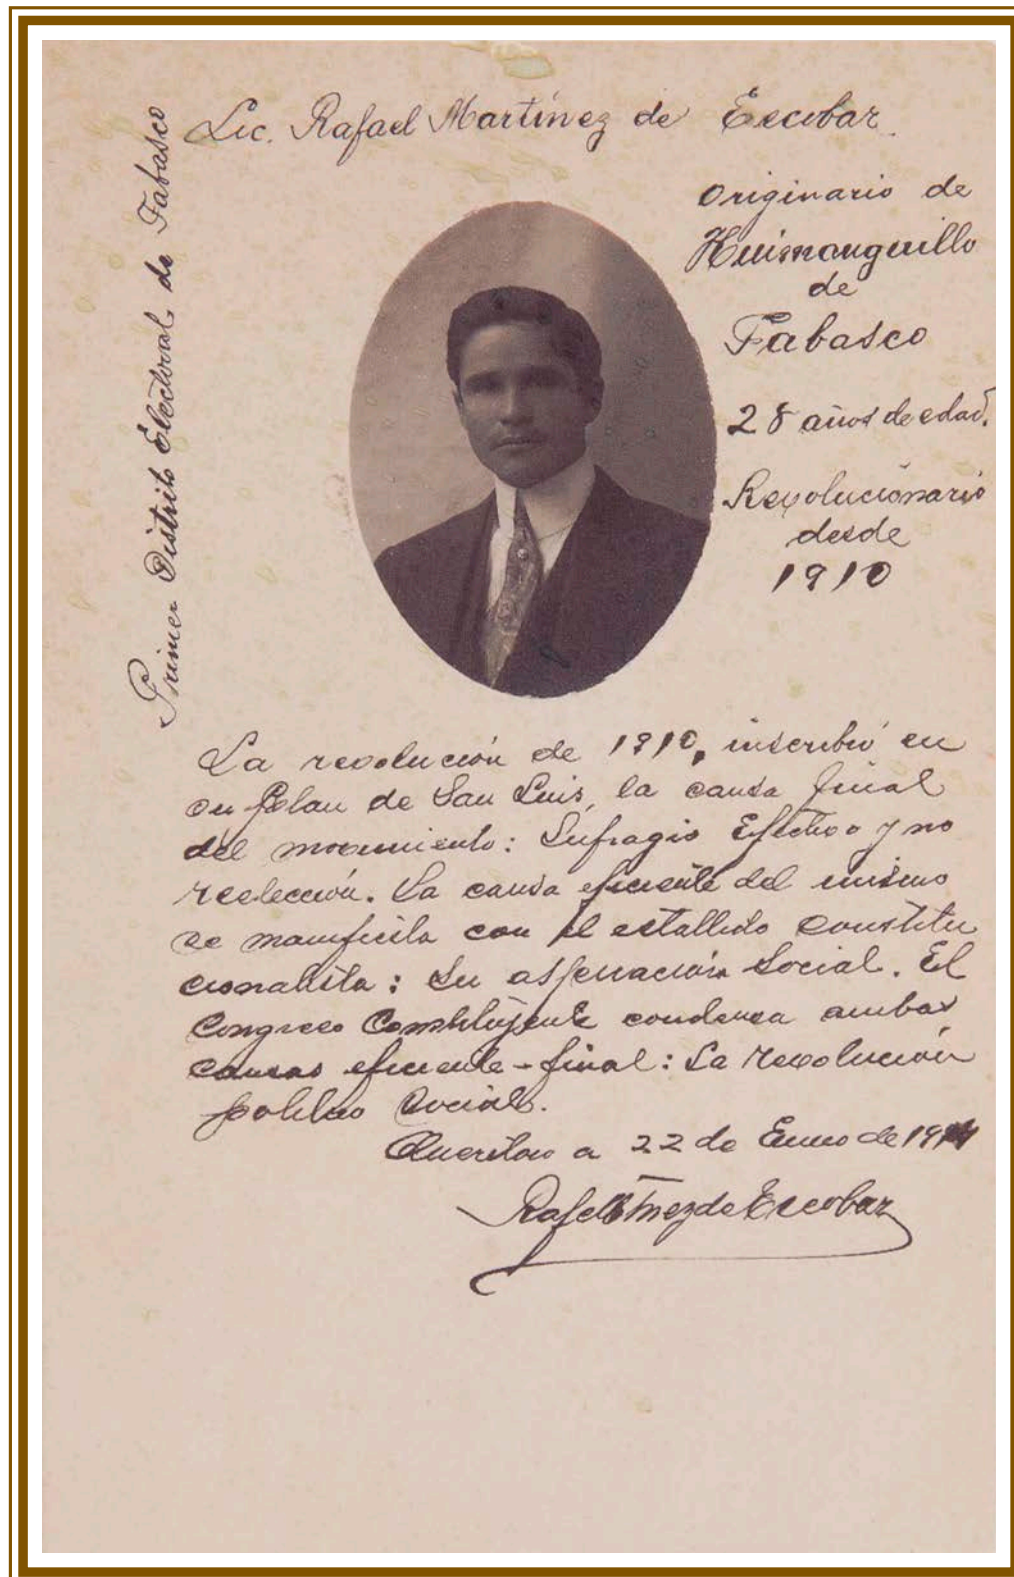 Lic. Rafael Martínez de Escobar.
Primer Distrito Electoral de Tabasco
Originario de
Huimanguillo
de
Tabasco
28 años de edad.
Revolucionario
desde
1910
La revolución de 1910, inscribió en
su plan de San Luis, la causa final
del movimiento: Sufragio Efectivo y no
reelección. La causa eficiente del mismo
se manifiesta con el estallido constitu
cionalista: Su aspiración Social. El
Congreso Constituyente condensa ambas
causas eficiente-final: La revolución
politico Social.
Querétaro a 22 de Enero de
Rafael Mnez de Escobar